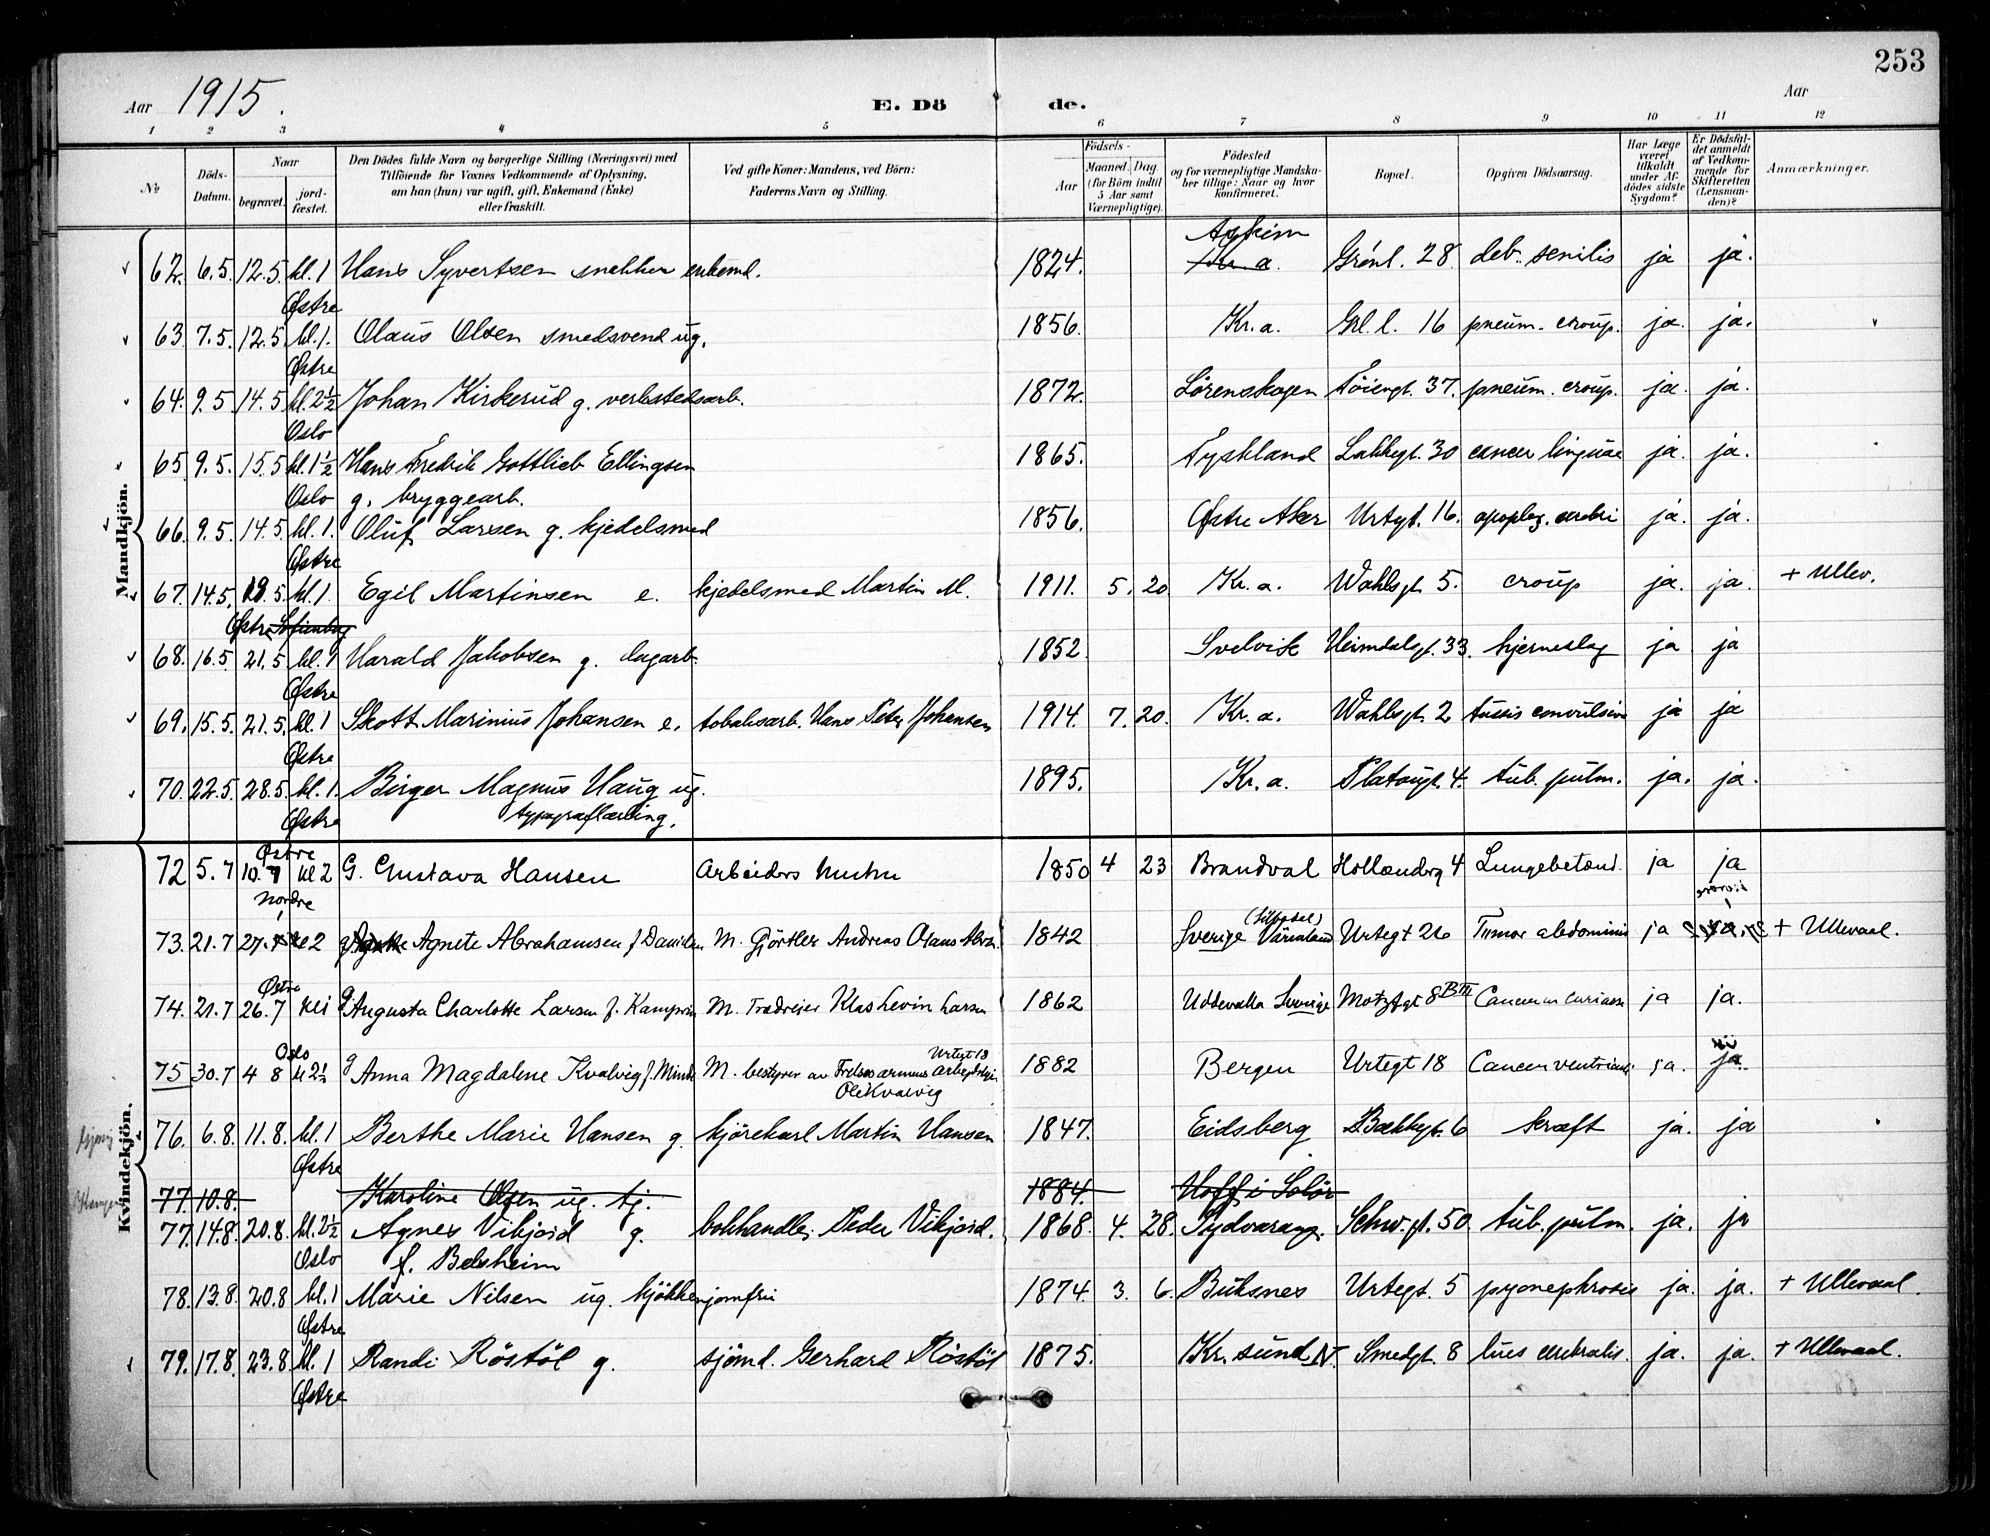 253
Aar 1915. E. Dö de. Aar
1 2 3 4 5 6 7 8 9 10 11 12
№
Döds-Datum.
Naar
begravet.
jord-fæstet.
Den Dödes fulde Navn og borgerlige Stilling (Næringsvei) med
Tilföiende for Voxnes Vedkommende af Oplysning,
om han (hun) var ugift, gift, Enkemand (Enke)
eller fraskilt.
Ved gifte Koner: Mandens, ved Börn:
Faderens Navn og Stilling.
Födsels-
Aar
Maaned. Dag.
(for Börn indtil
5 Aar samt
Værnepligtige).
Födested
og for værnepligtige Mandska-
ber tillige: Naar og hvor
konfirmeret.
Bopæl.
Opgiven Dödsaarsag.
Har Læge
været
tilkaldt
under Af-
dödes sidste
Sygdom?
Er Dödsfal-
det anmeldt
af Vedkom-
mende for
Skifteretten
(Lensman-
den)?
Anmærkninger.
Mandkjön.
Askim
62. 6.5. 12.5. kl. 1 Hans Syvertsen snekker enkemd. 1824. Kr. a. Grönl. 28. deb. senilis ja ja.
Østre
63. 7.5. 12.5. kl. 1. Olaus Olsen smedsvend ug. 1856. Kr. a. Grl. l. 16 pneum. croup. ja. ja.
Østre
64. 9.5. 14.5. kl. 2½ Johan Kirkerud g. verkstedsarb. 1872. Lörenskogen Töiengt. 37. pneum. croup. ja. ja.
Oslo
65. 9.5. 15.5. kl. 1½ Hans Fredrik Gottlieb Ellingsen 1865. Tyskland Lakkegt. 30 cancer linguae ja. ja.
Oslo g. bryggearb.
66. 9.5. 14.5. kl. 1. Oluf Larsen g. kjedelsmed 1856. Østre Aker Urtegt. 16. apoplex. cerebri ja. ja.
Østre
67. 14.5. 19.5. kl. 1 Egil Martinsen e. kjedelsmed Martin M. 1911. 5. 20 Kr. a. Wahlsgt. 5. croup ja. ja. + Ullev.
Østre Sofienberg
68. 16.5. 21.5. kl. 1 Harald Jakobsen g. dagarb. 1852 Svelvik Heimdalsgt. 33. hjerneslag ja ja
Østre
69. 15.5. 21.5. kl. 1 Skott Marinius Johansen e. tobaksarb. Hans Peter Johansen 1914. 7. 20. Kr. a. Wahlsgt. 2 tussis convulsiva ja ja
Østre
70. 22.5. 28.5. kl. 1. Birger Magnus Haug ug. 1895. Kr. a. Platougt. 4. tub. pulm. ja. ja.
Østre typograflærling.
Kvindekjön.
Østre
72 5.7 10.7 kl 2 G. Gustava Hansen Arbeiders hustru 1850 4 23 Brandval Hollenderg 4 Lungebetænd. ja ja
Nordre
73. 21.7 27.7 kl 2 g Agnete Abrahamsen f Danielsen M. Gjörtler Andreas Olaus Abrah. 1842 Sverige Värmland Urtegt 26 Tumor abdominis ja + Ullevaal.
Østre
74. 21.7 26.7 kl 1 g Augusta Charlotte Larsen f. M. Trædreier Klas Levin Larsen 1862 Uddevalla Sverige Motzfgt 8 B III Cancer ja ja.
Oslo Urtegt 18
75 30.7 4 8 kl 2½ g Anna Magdalene Kvalvig f. Minde M. bestyrer av Frelsesarmeens 1882 Bergen Urtegt 18 Cancer ventriculi ja. ja.
Ole Kvalvig
76. 6.8. 11.8. kl. 1 Berthe Marie Hansen g. kjörekarl Martin Hansen 1847. Eidsberg Bækkegt. 6 kræft ja. ja
Østre
77. 10.8. Karoline Olsen ug. tj. 1884. Hoff i Solör
77. 14.8. 20.8. kl. 2½ Agnes Vikjord g. bokhandler Peder Vikjord. 1868. 4. 28. Sydvarang. Schw. gt. 50 tub. pulm. ja. ja
Oslo f. Belsheim
78. 13.8. 20.8 kl. 1 Marie Nilsen ug. kjökkenjomfru 1874. 3. 6. Buksnes Urtegt. 5 pyonephrosis ja. ja. + Ullevaal.
Østre
79. 17.8. 23.8. kl. 1 Randi Röstöl g. sjömd. Gerhard Röstöl 1875. Kr. sund N. Smedgt. 8 lues cerebralis. ja. ja. + Ullevaal.
Østre